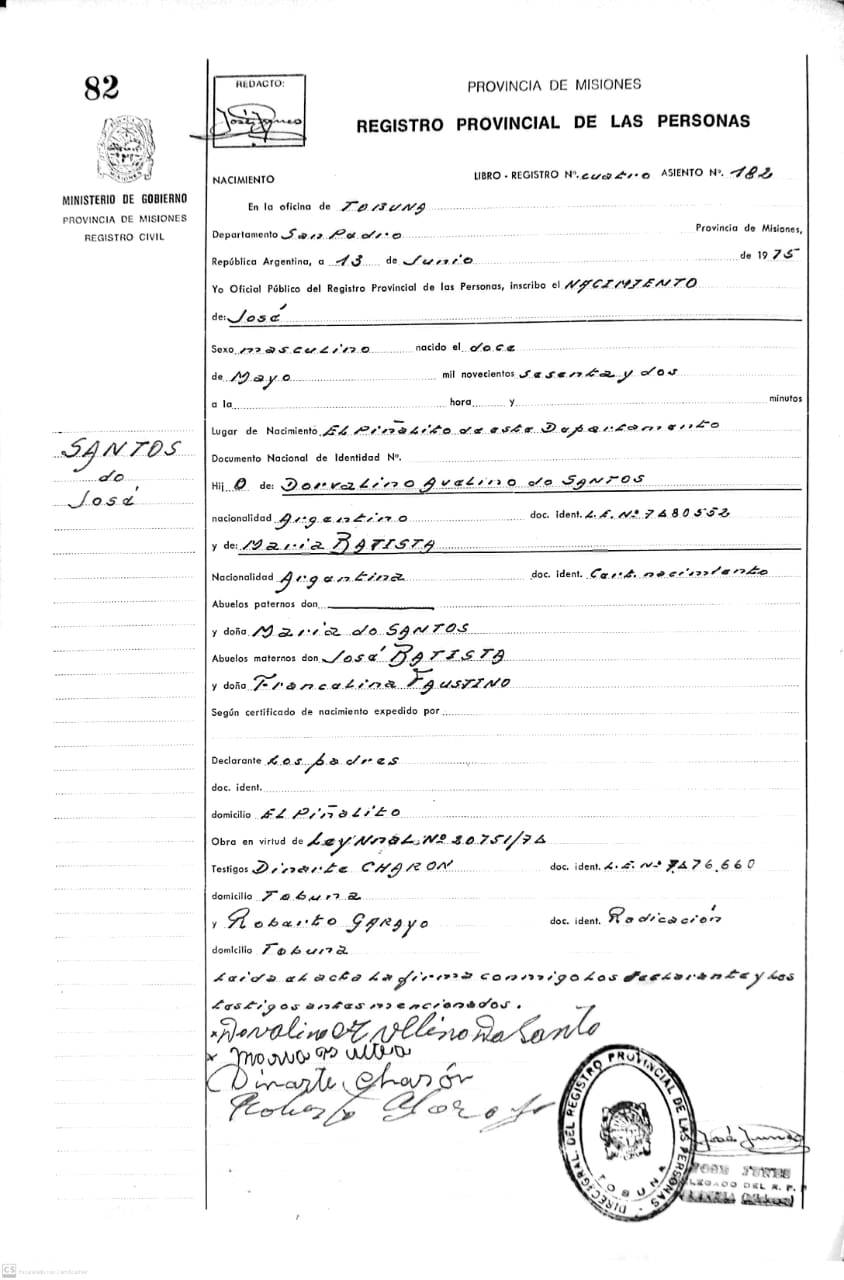 82
REDACTO:
PROVINCIA DE MISIONES
REGISTRO PROVINCIAL DE LAS PERSONAS
MINISTERIO DE GOBIERNO
PROVINCIA DE MISIONES
REGISTRO CIVIL
NACIMIENTO LIBRO - REGISTRO Nº. cuatro ASIENTO Nº. 182
En la oficina de TOBUNA
Departamento San Pedro Provincia de Misiones,
República Argentina, a 13 de Junio de 1975
Yo Oficial Público del Registro Provincial de las Personas, inscribo el NACIMIENTO
de: José
Sexo masculino nacido el doce
de Mayo mil novecientos sesenta y dos
a la hora y minutos
Lugar de Nacimiento EL Piñalito de este Departamento
SANTOS
do
José
Documento Nacional de Identidad Nº.
Hij o de: Dorvalino Avelino do SANTOS
nacionalidad Argentino doc. ident. L.E. Nº 7480552
y de: Maria BATISTA
Nacionalidad Argentina doc. ident. Cert. nacimiento
Abuelos paternos don
y doña Maria do SANTOS
Abuelos maternos don José BATISTA
y doña Francelina FAUSTINO
Según certificado de nacimiento expedido por
Declarante Los padres
doc. ident.
domicilio EL Piñalito
Obra en virtud de Ley Nnal. Nº 20751/74
Testigos Dinarte CHARON doc. ident. L.E. Nº 7476.660
domicilio Tobuna
y Roberto GARAYO doc. ident. Radicación
domicilio Tobuna
Leida el acta la firma conmigo los declarante y los
testigos antes mencionados.
Dinarte Charón
DIREC. GRAL. DEL REGISTRO PROVINCIAL DE LAS PERSONAS
TOBUNA